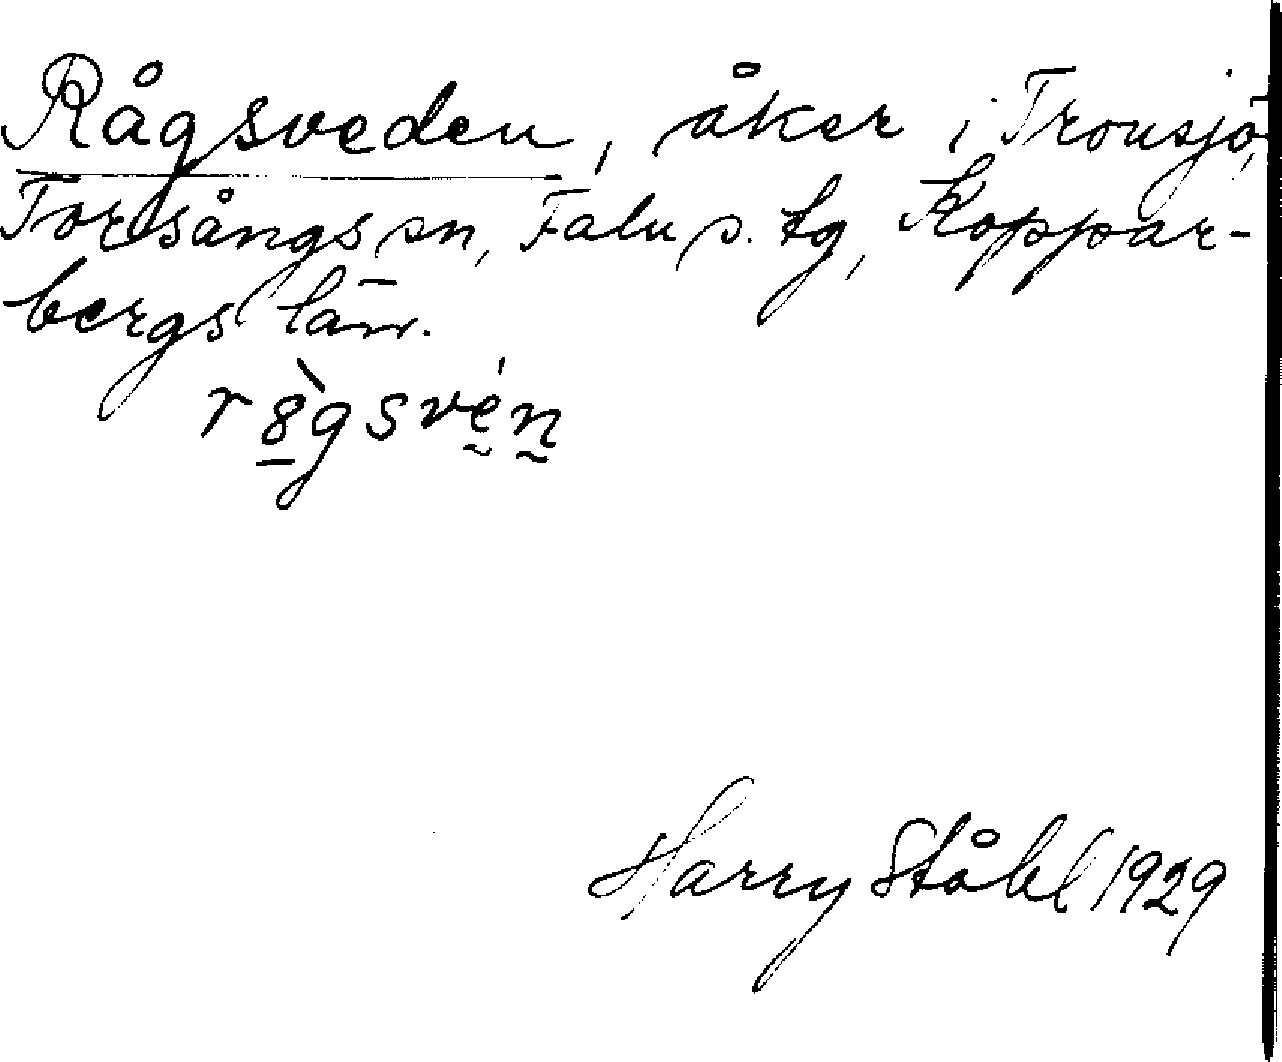 Rågsveden, åker i Tronsjö,
Torsångs sn, Falu s. tg, Koppar-
bergs län.
r8̲̀gsvḛ́n̰
Harry Ståhl 1929